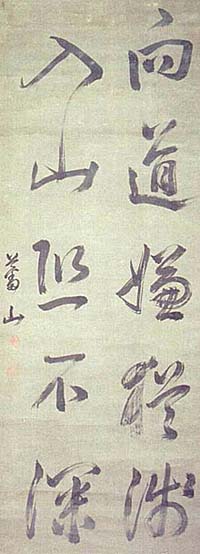 向道嫌猶浅
入山恐不深
蕃山